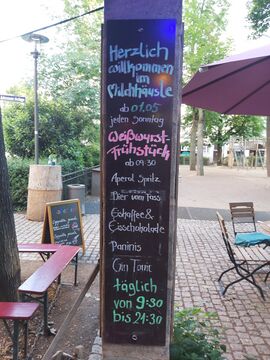 Herzlich
willkommen
im
Milchhäusle
ab 01.05
jeden Sonntag
Weißwurst-
Frühstück
ab 09:30
Aperol Spritz
Bier vom Fass
Eiskaffee &
Eisschokolade
Paninis!
Gin Tonic
täglich
von 9:30
bis 21:30